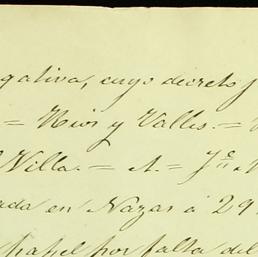 gativa, cuyo decreto f
= Rios y Valles. =
Villa. = A. = J
ada en Nazas á 29
papel por falta del